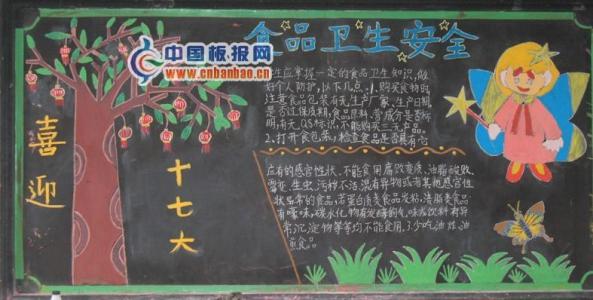 中国板报网
www.cnbanbao.cn
食品卫生安全
喜迎
十七大
生应掌握一定的食品卫生知识,做
好个人防护,以下几点:1、购买食物时
注意食品包装有无生产厂家、生产日期
是否过保质期,食品原料、营成分是否标
明,有无QS标识,不能购买三无产品。
2、打开食包装,检查食品是否具有它
应有的感官性状、不能食用腐败变质、油脂酸败、
霉变、生虫、污秽不洁、混有异物或者其他感官性
状异常的食品,若蛋白质类食品发粘,渍脂类食品
有嚎味,碳水化物有发酵的气味或饮料有异
常沉淀物等等均不能食用。3、少吃油炸油
煎食品